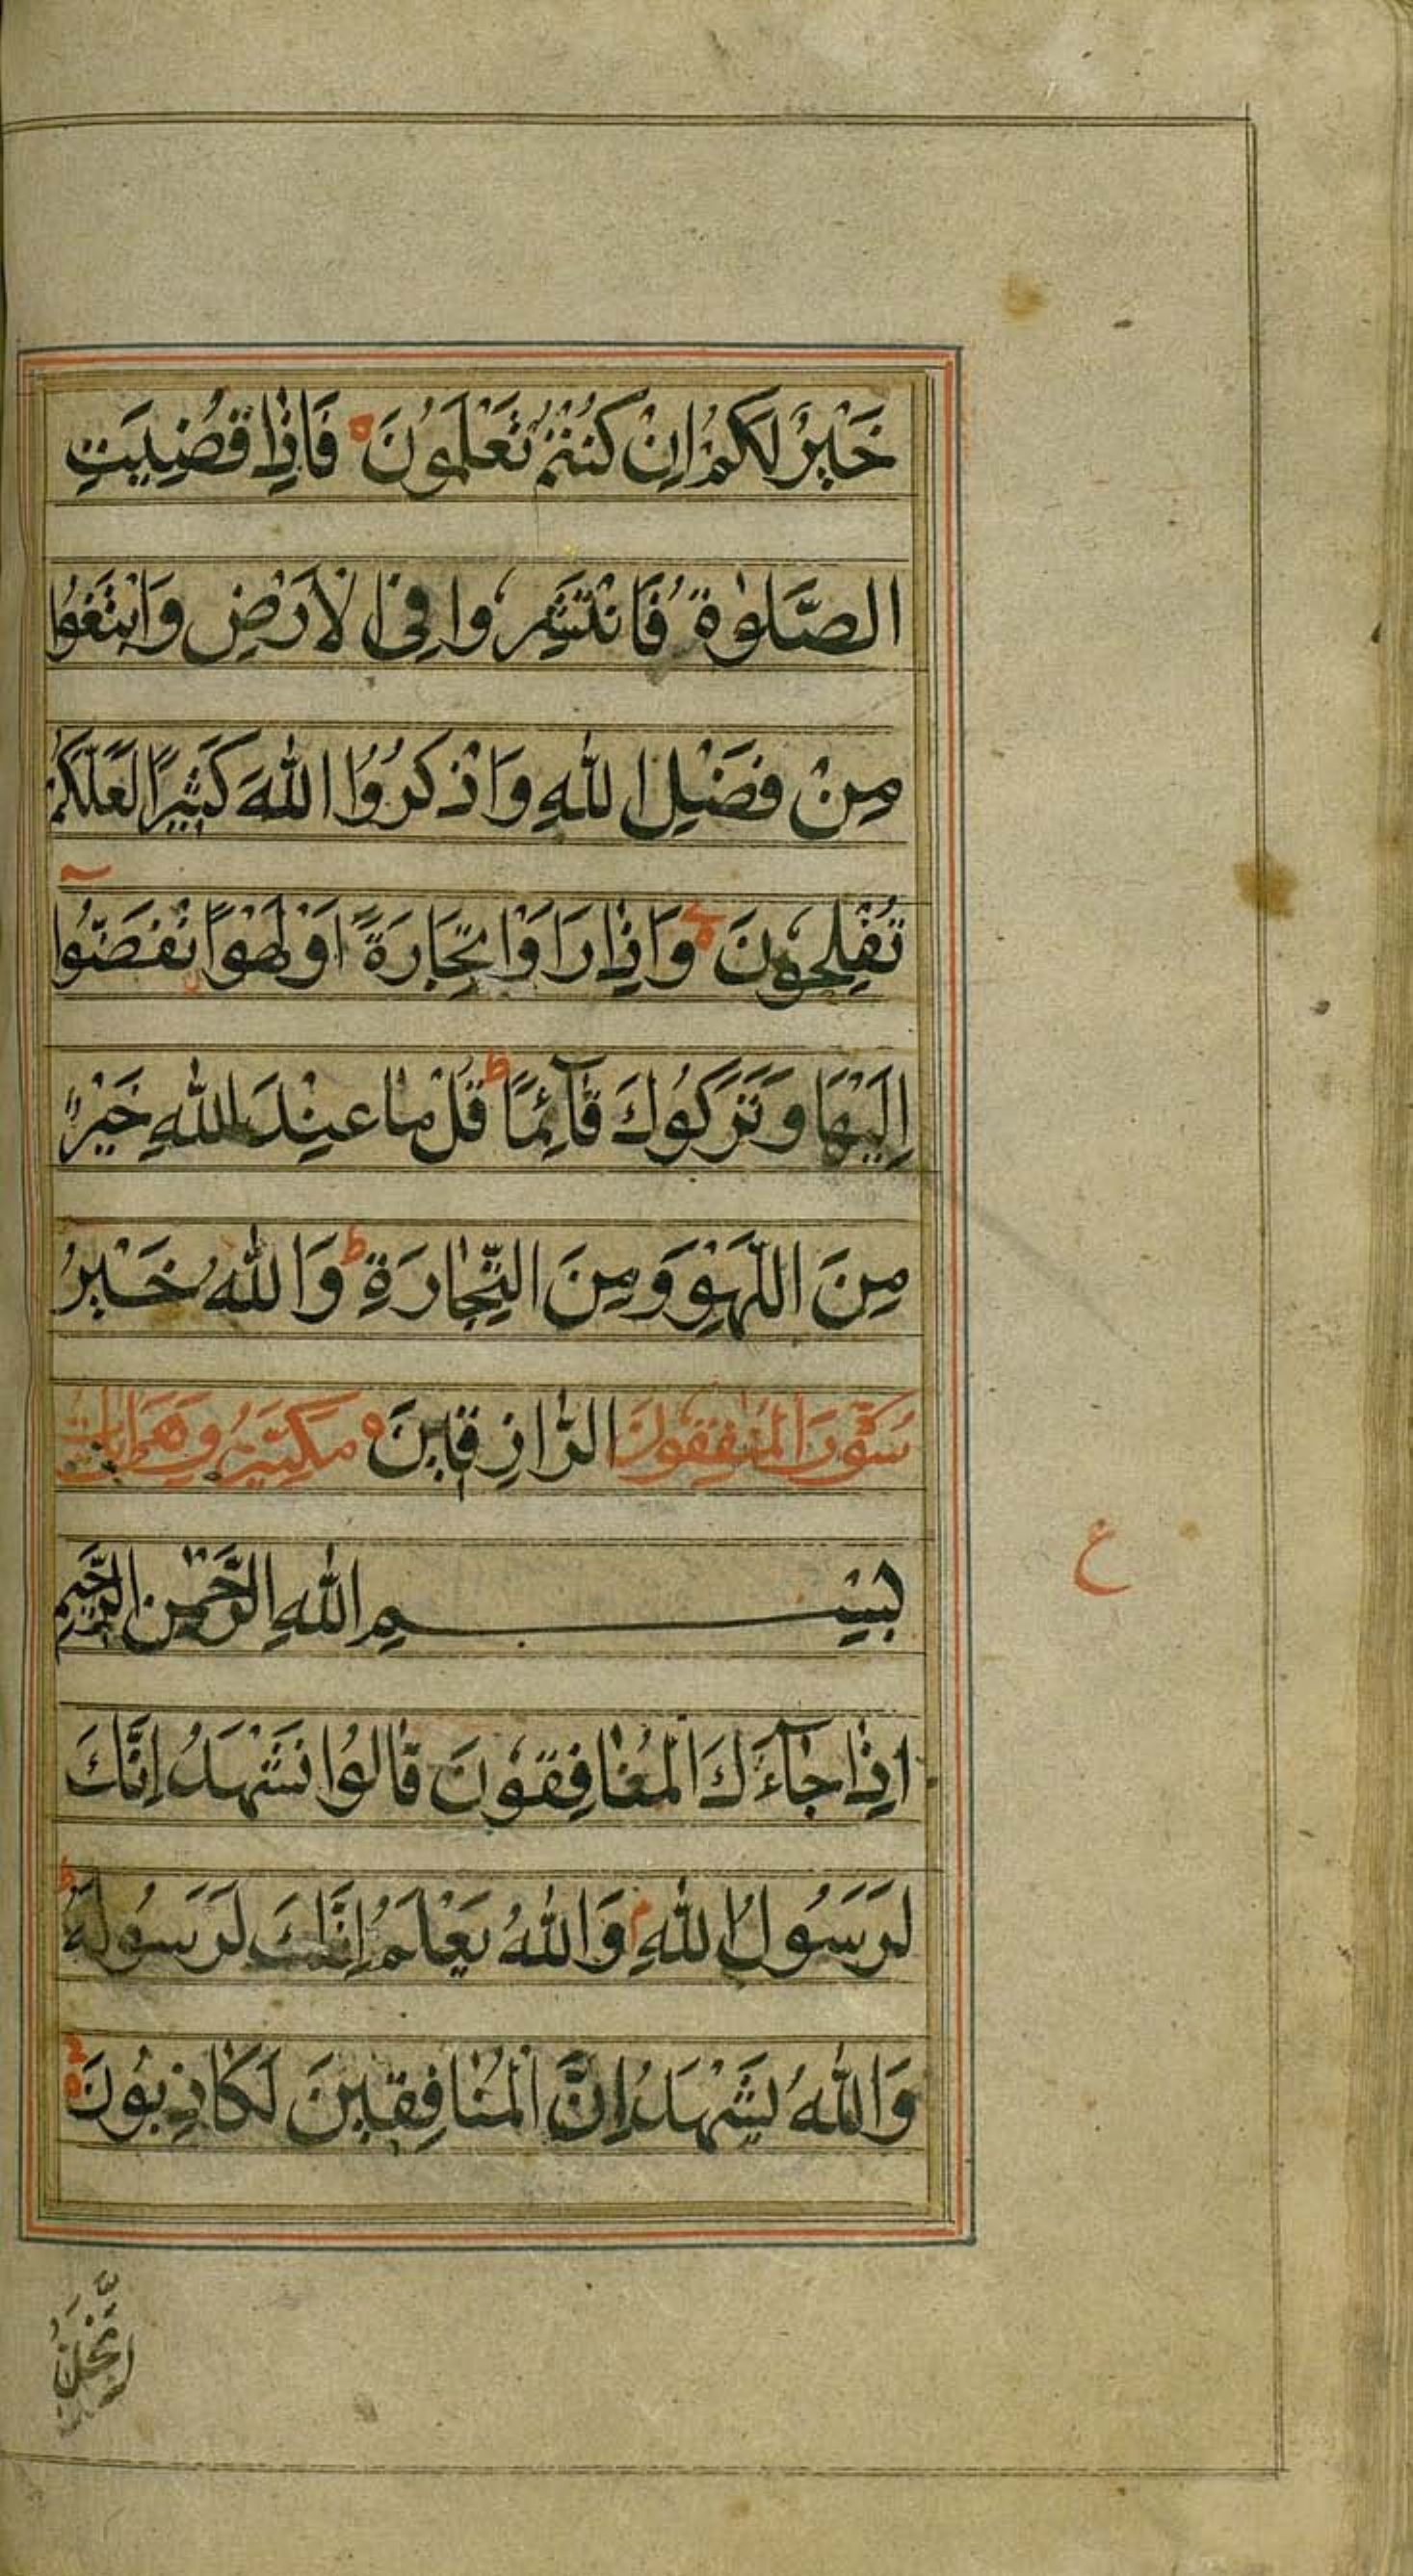 خَيْرٌ لَكُمْ اِنْ كُنْتُمْ تَعْلَمُونَ ه فَاِذَا قُضِيَتِ
الصَّلٰوةُ فَانْتَشِرُوا فِي الْاَرْضِ وَابْتَغُوا
مِنْ فَضْلِ اللّٰهِ وَاذْكُرُوا اللّٰهَ كَثِيرًا لَعَلَّكُمْ
تُفْلِحُونَ ه وَاِذَا رَاَوْا تِجَارَةً اَوْ لَهْوًا نْفَضُّوا
اِلَيْهَا وَتَرَكُوكَ قَآئِمًا ط قُلْ مَا عِنْدَ اللّٰهِ خَيْرٌ
مِنَ اللَّهْوِ وَمِنَ التِّجَارَةِ ط وَاللّٰهُ خَيْرُ
سُورَة الْمُنٰفِقُونَ الرَّازِقِينَ ه مكية وهي
بِسْمِ اللّٰهِ الرَّحْمٰنِ الرَّحِيمِ
ع
اِذَا جَآءَكَ الْمُنَافِقُونَ قَالُوا نَشْهَدُ اِنَّكَ
لَرَسُولُ اللّٰهِ م وَاللّٰهُ يَعْلَمُ اِنَّكَ لَرَسُولُهُ ط
وَاللّٰهُ يَشْهَدُ اِنَّ الْمُنَافِقِينَ لَكَاذِبُونَ ه
اِتَّخَذُ